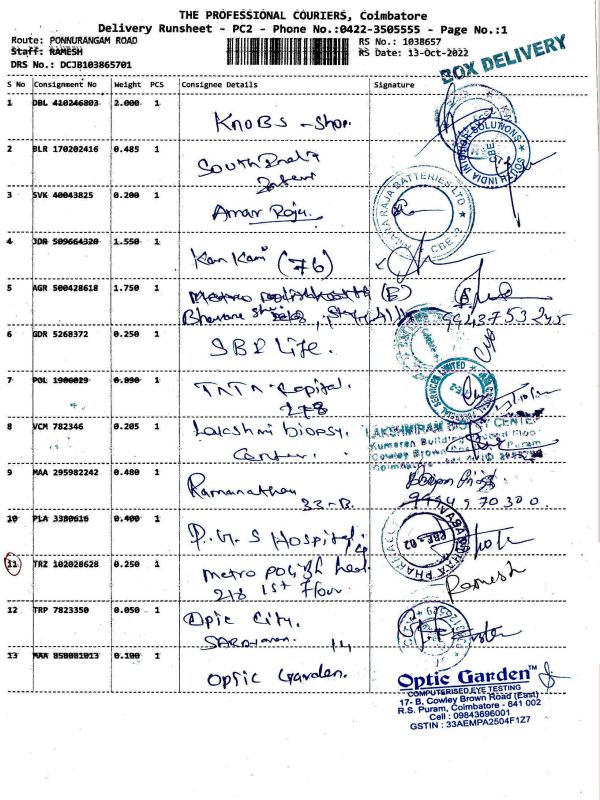 THE PROFESSIONAL COURIERS, Coimbatore
Delivery Runsheet - PC2 - Phone No.:0422-3505555 - Page No.:1
Route: PONNURANGAM ROAD
RS No.: 1038657
Staff: RAMESH
RS Date: 13-Oct-2022
DRS No.: DCJB103865701
BOX DELIVERY
S No Consignment No Weight PCS Consignee Details Signature
1 DBL 410246803 2.000 1 KNOBS - Shop.
2 BLR 170202416 0.485 1 South India
SOUTH INDIA INTERIOR SOLUTIONS CBE
3 SVK 40043825 0.200 1 Amar Raju.
AMARA RAJA BATTERIES LTD CBE-2
4 JDR 509664320 1.550 1 Kan Kani (76)
5 AGR 500428618 1.750 1 Metro (E)
Bhavani
9943753245
6 GDR 5268372 0.250 1 SBI Life.
7 POL 1906029 0.090 1 TATA Capital.
218
8 VCM 782346 0.205 1 Lakshmi biopsy.
Center.
LAKSHMIRAM BIOPSY CENTER
Kumaran Building
Cowley Brown
Puram
Coimbatore
9 MAA 295982242 0.480 1 Ramanathan
33-B.
10 PLA 3380616 0.400 1 Hospital
CBE-02
11 TRZ 102028628 0.250 1 Metro
218 1st Floor
Ramesh
12 TRP 7823350 0.050 1 Optic City.
13 MAA 858081013 0.100 1 Optic Garden.
Optic Garden™
COMPUTERISED EYE TESTING
17- B, Cowley Brown Road (East)
R.S. Puram, Coimbatore - 641 002
Cell : 09843696001
GSTIN : 33AEMPA2504F1Z7